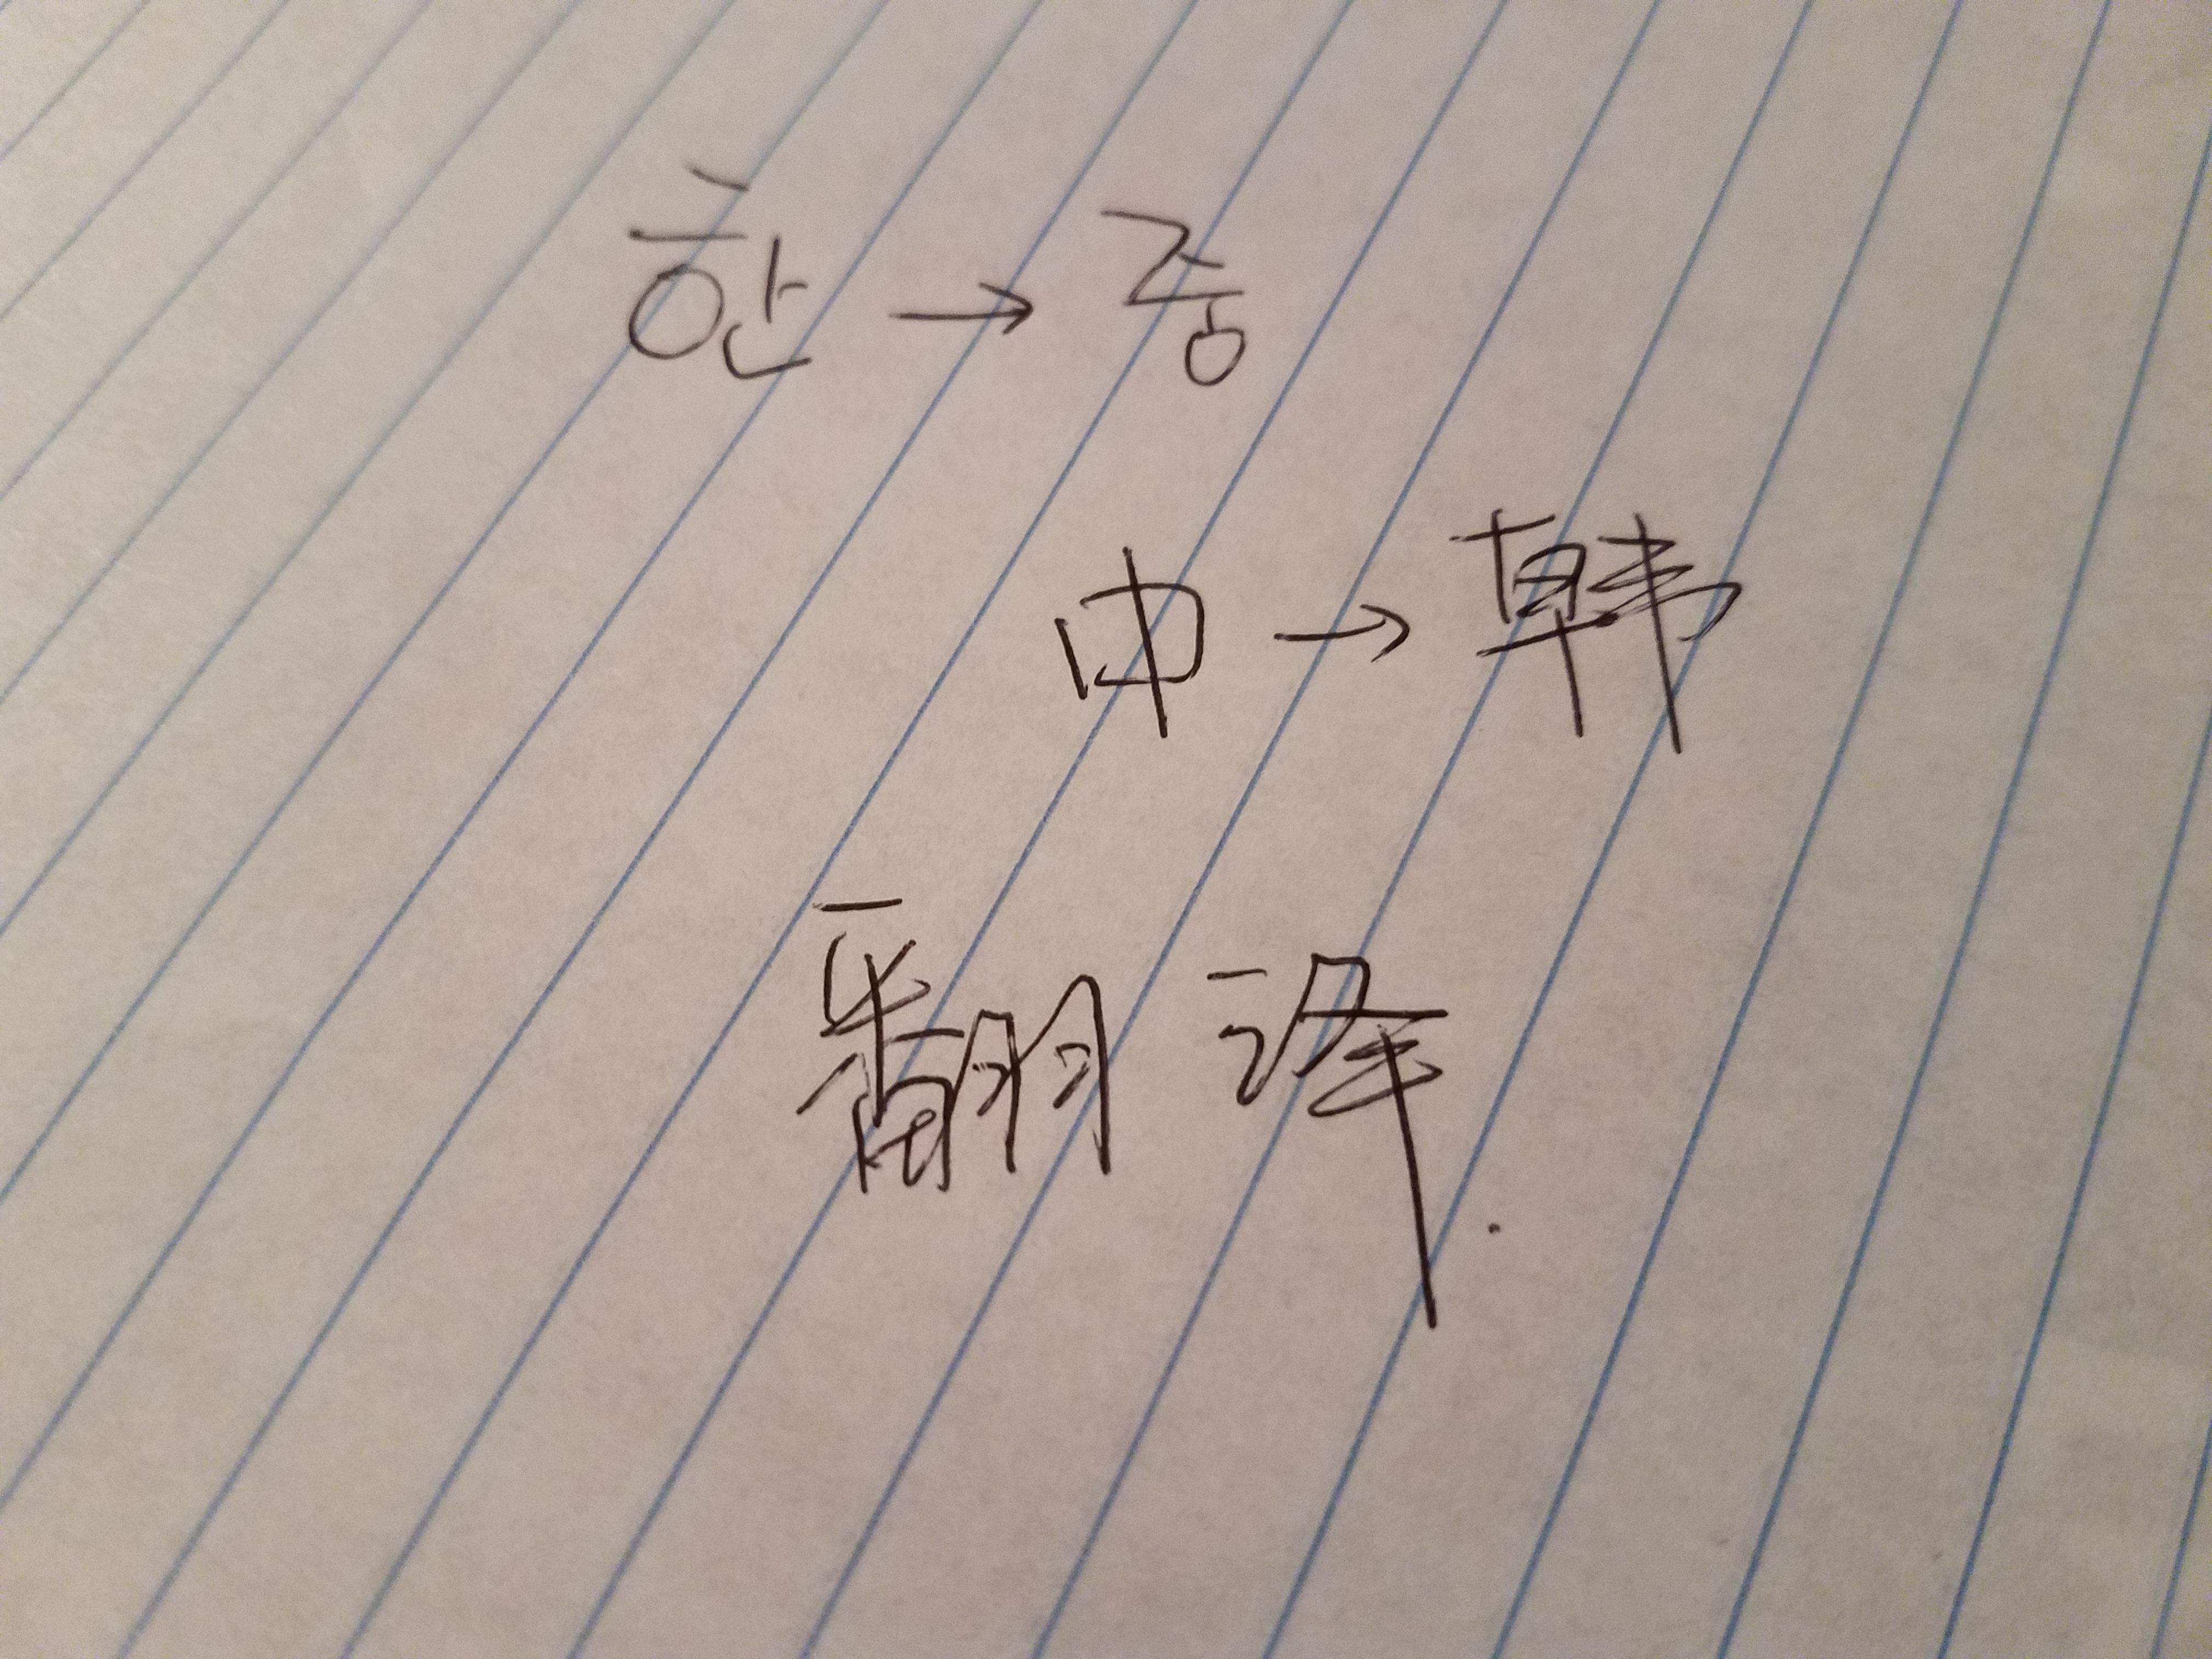 한 → 중
中 → 韩
翻译.